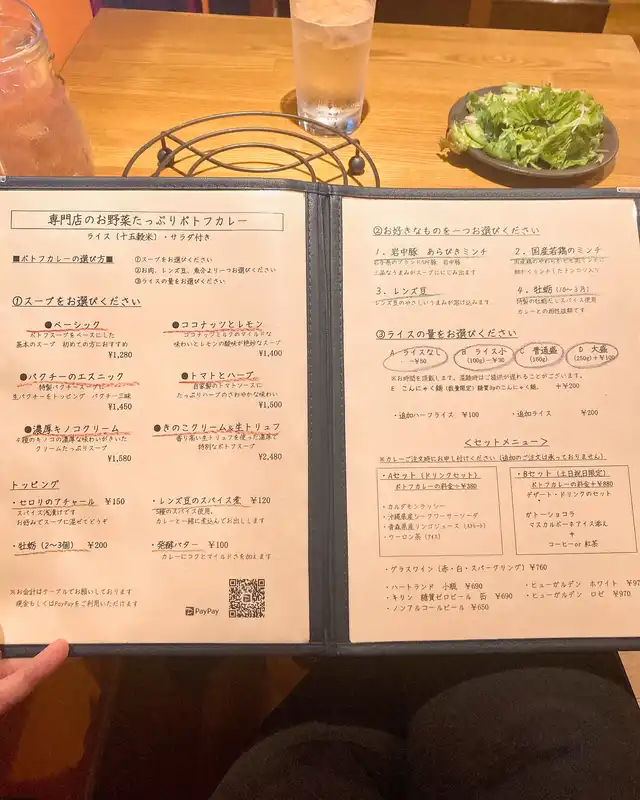 専門店のお野菜たっぷりポトフカレー
ライス（十五穀米）・サラダ付き
■ポトフカレーの選び方■
①スープをお選びください
②お肉、レンズ豆、魚介より一つお選びください
③ライスの量をお選びください
①スープをお選びください
●ベーシック
ポトフスープをベースにした
基本のスープ 初めての方におすすめ
¥1,280
●ココナッツとレモン
ココナッツミルクのマイルドな
味わいとレモンの酸味が絶妙なスープ
¥1,400
●パクチーのエスニック
特製パクチー
生パクチーをトッピング パクチー三昧
¥1,450
●トマトとハーブ
自家製のトマトソースに
たっぷりハーブのさわやかな味わい
¥1,500
●濃厚キノコクリーム
4種のキノコの濃厚な味わいがきいた
クリームたっぷりスープ
¥1,580
●きのこクリーム&生トリュフ
香り高い生トリュフを使った濃厚で
特別なポトフスープ
¥2,480
トッピング
・セロリのアチャール ¥150
スパイス浅漬けです
お好みでスープに混ぜてどうぞ
・レンズ豆のスパイス煮 ¥120
5種のスパイス使用。
カレーと一緒に煮込んでお出しします
・牡蛎（2〜3個） ¥200
・発酵バター ¥100
カレーにコクとマイルドさを加えます
※お会計はテーブルでお願いしております
現金もしくはPayPayをご利用いただけます
PayPay
②お好きなものを一つお選びください
1. 岩中豚 あらびきミンチ
岩手県のブランドSPF豚 岩中豚
上品なうまみがスープににじみ出ます
2. 国産若鶏のミンチ
3. レンズ豆
レンズ豆のやさしいうまみが溶け込みます
4. 牡蛎（10〜3月）
特製の牡蛎だしスパイス使用
カレーとの相性抜群です
③ライスの量をお選びください
A ライスなし
−¥50
B ライス小
(100g)−¥30
C 普通盛
(160g)
D 大盛
(250g)+¥100
※お時間を頂戴します。混雑時はご提供が遅れることがございます。
E こんにゃく麺（数量限定）糖質0gのこんにゃく麺。 +¥200
・追加ハーフライス ¥100
・追加ライス ¥200
<セットメニュー>
※カレーご注文時にお申し付けください（追加のご注文は承っておりません）
・Aセット（ドリンクセット）
ポトフカレーの料金+¥380
・カルダモンラッシー
・沖縄県産シークワーサーソーダ
・青森県産リンゴジュース（ストレート）
・ウーロン茶（アイス）
・Bセット（土日祝日限定）
ポトフカレーの料金+¥880
デザート・ドリンクのセット
ガトーショコラ
マスカルポーネアイス添え
+
コーヒーor 紅茶
・グラスワイン（赤・白・スパークリング）¥760
・ハートランド 小瓶 ¥690
・キリン 糖質ゼロビール 缶 ¥690
・ノンアルコールビール ¥650
・ヒューガルデン ホワイト ¥97
・ヒューガルデン ロゼ ¥970